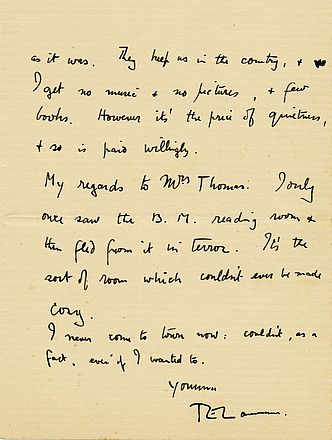 as it was. They keep us in the country, &
I get no music & no pictures, & few
books. However it's the price of quietness,
& so is paid willingly.
My regards to Mrs Thomas. I only
once saw the B. M. reading room &
then fled from it in terror. It's the
sort of room which couldn't ever be made
cosy.
I never come to town now: couldn't, as a
fact, even if I wanted to.
Yours
T E L